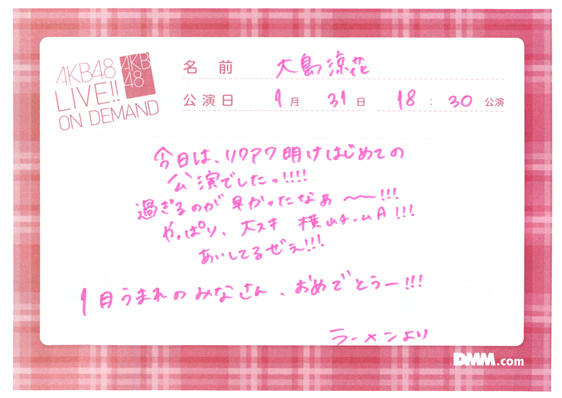 AKB48
LIVE!!
ON DEMAND
AKB
48
名前 大島涼花
公演日 1月 31日 18:30 公演
今日は、リクアワ明けはじめての
公演でしたっ!!!!
過ぎるのが早かったなぁ〜〜!!!
やっぱり、大スキ 横山チームA!!!
あいしてるぜぇ!!!
1月うまれのみなさん、おめでとうー!!!
ラーメンより
DMM.com